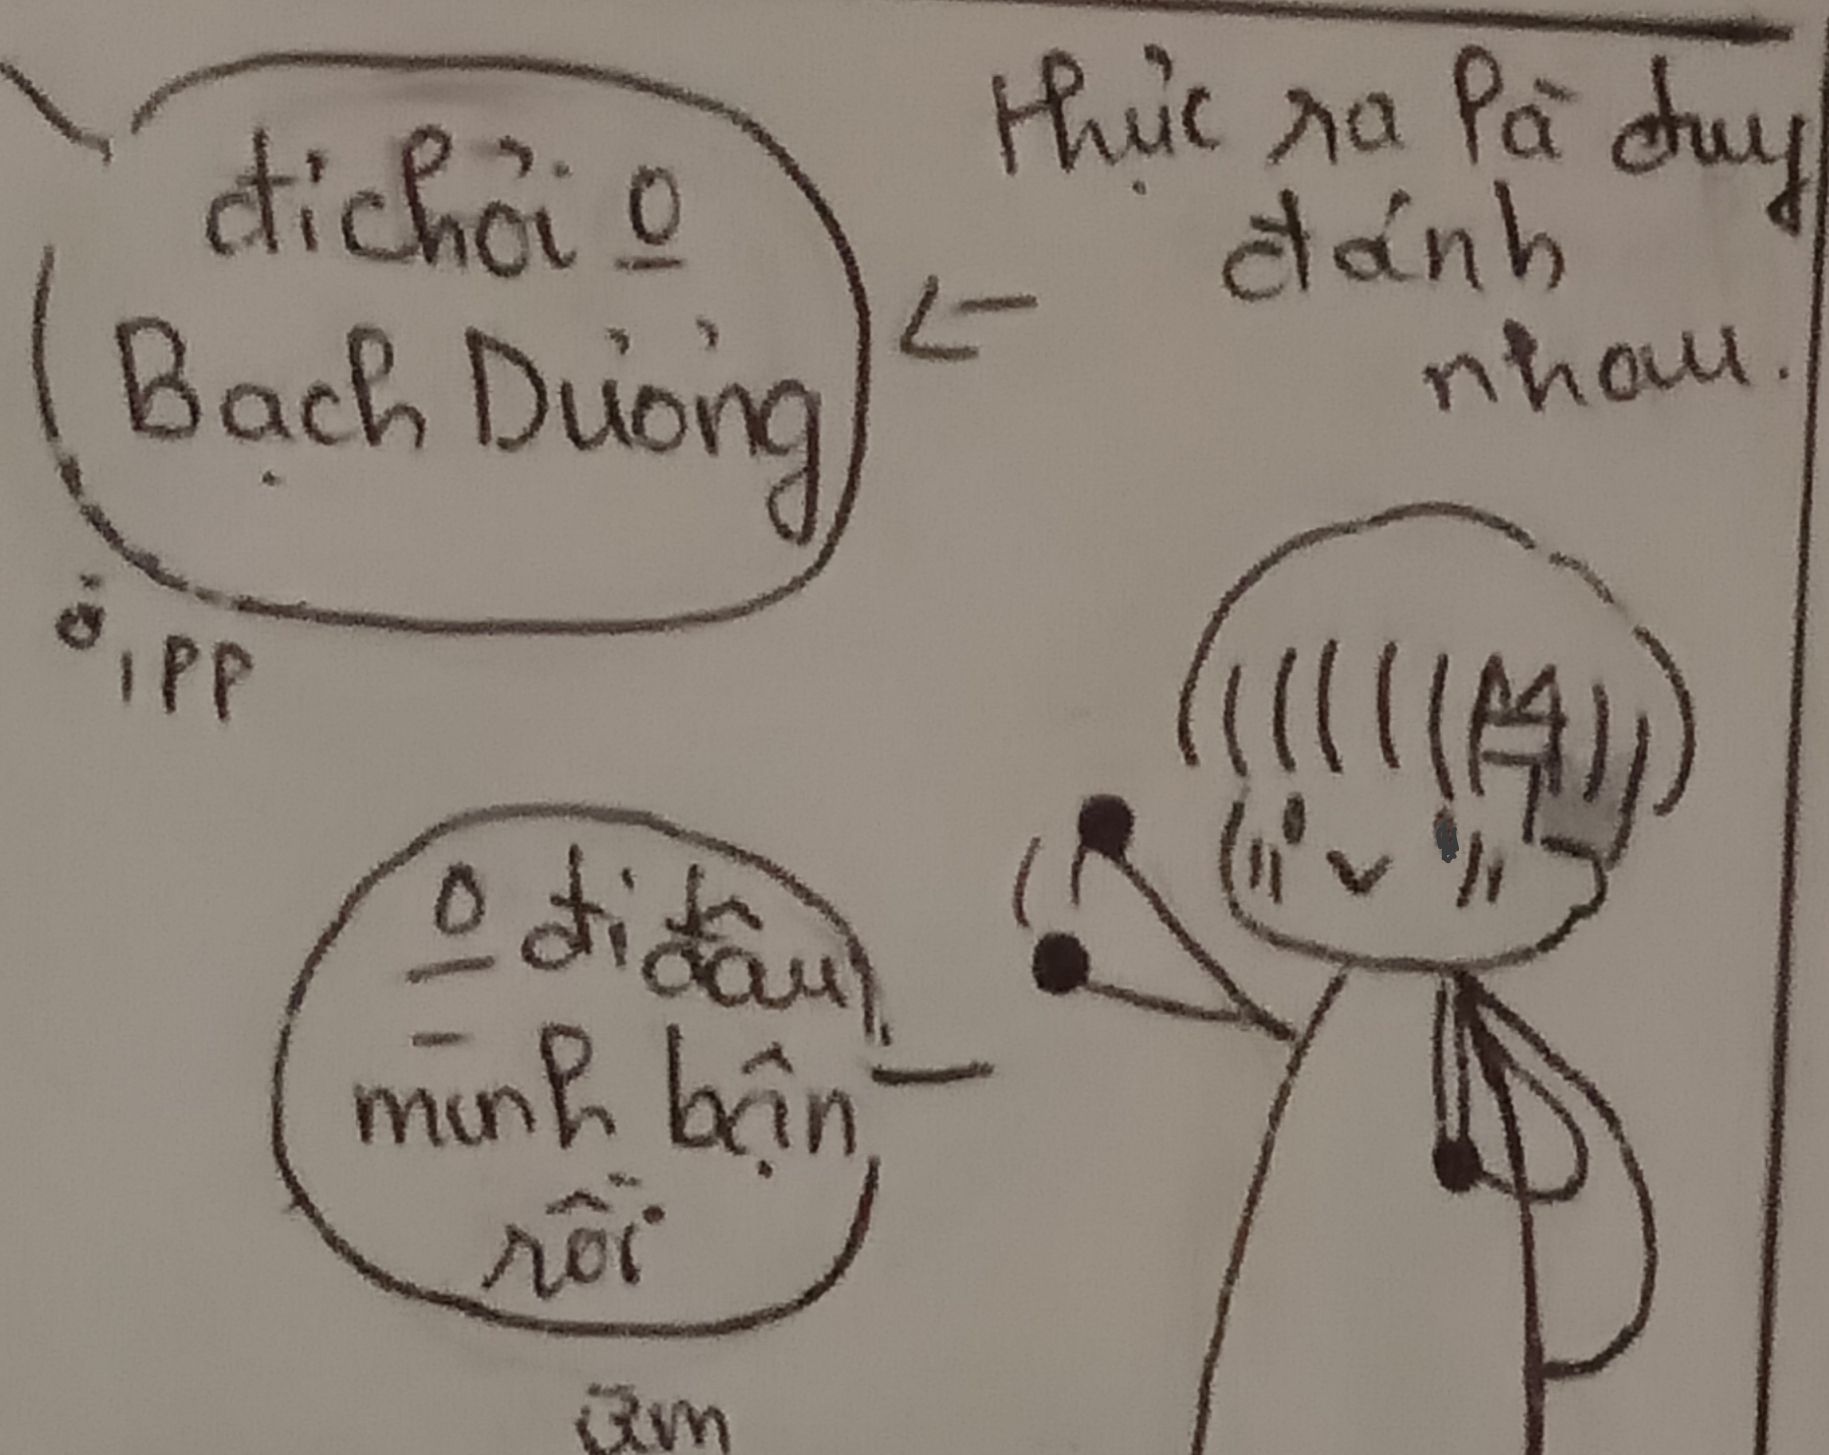 đi chơi o
Bạch Dương
thực ra là duy
đánh
nhau.
ờ, pp
o đi đâu
mình bận
rồi
ừm